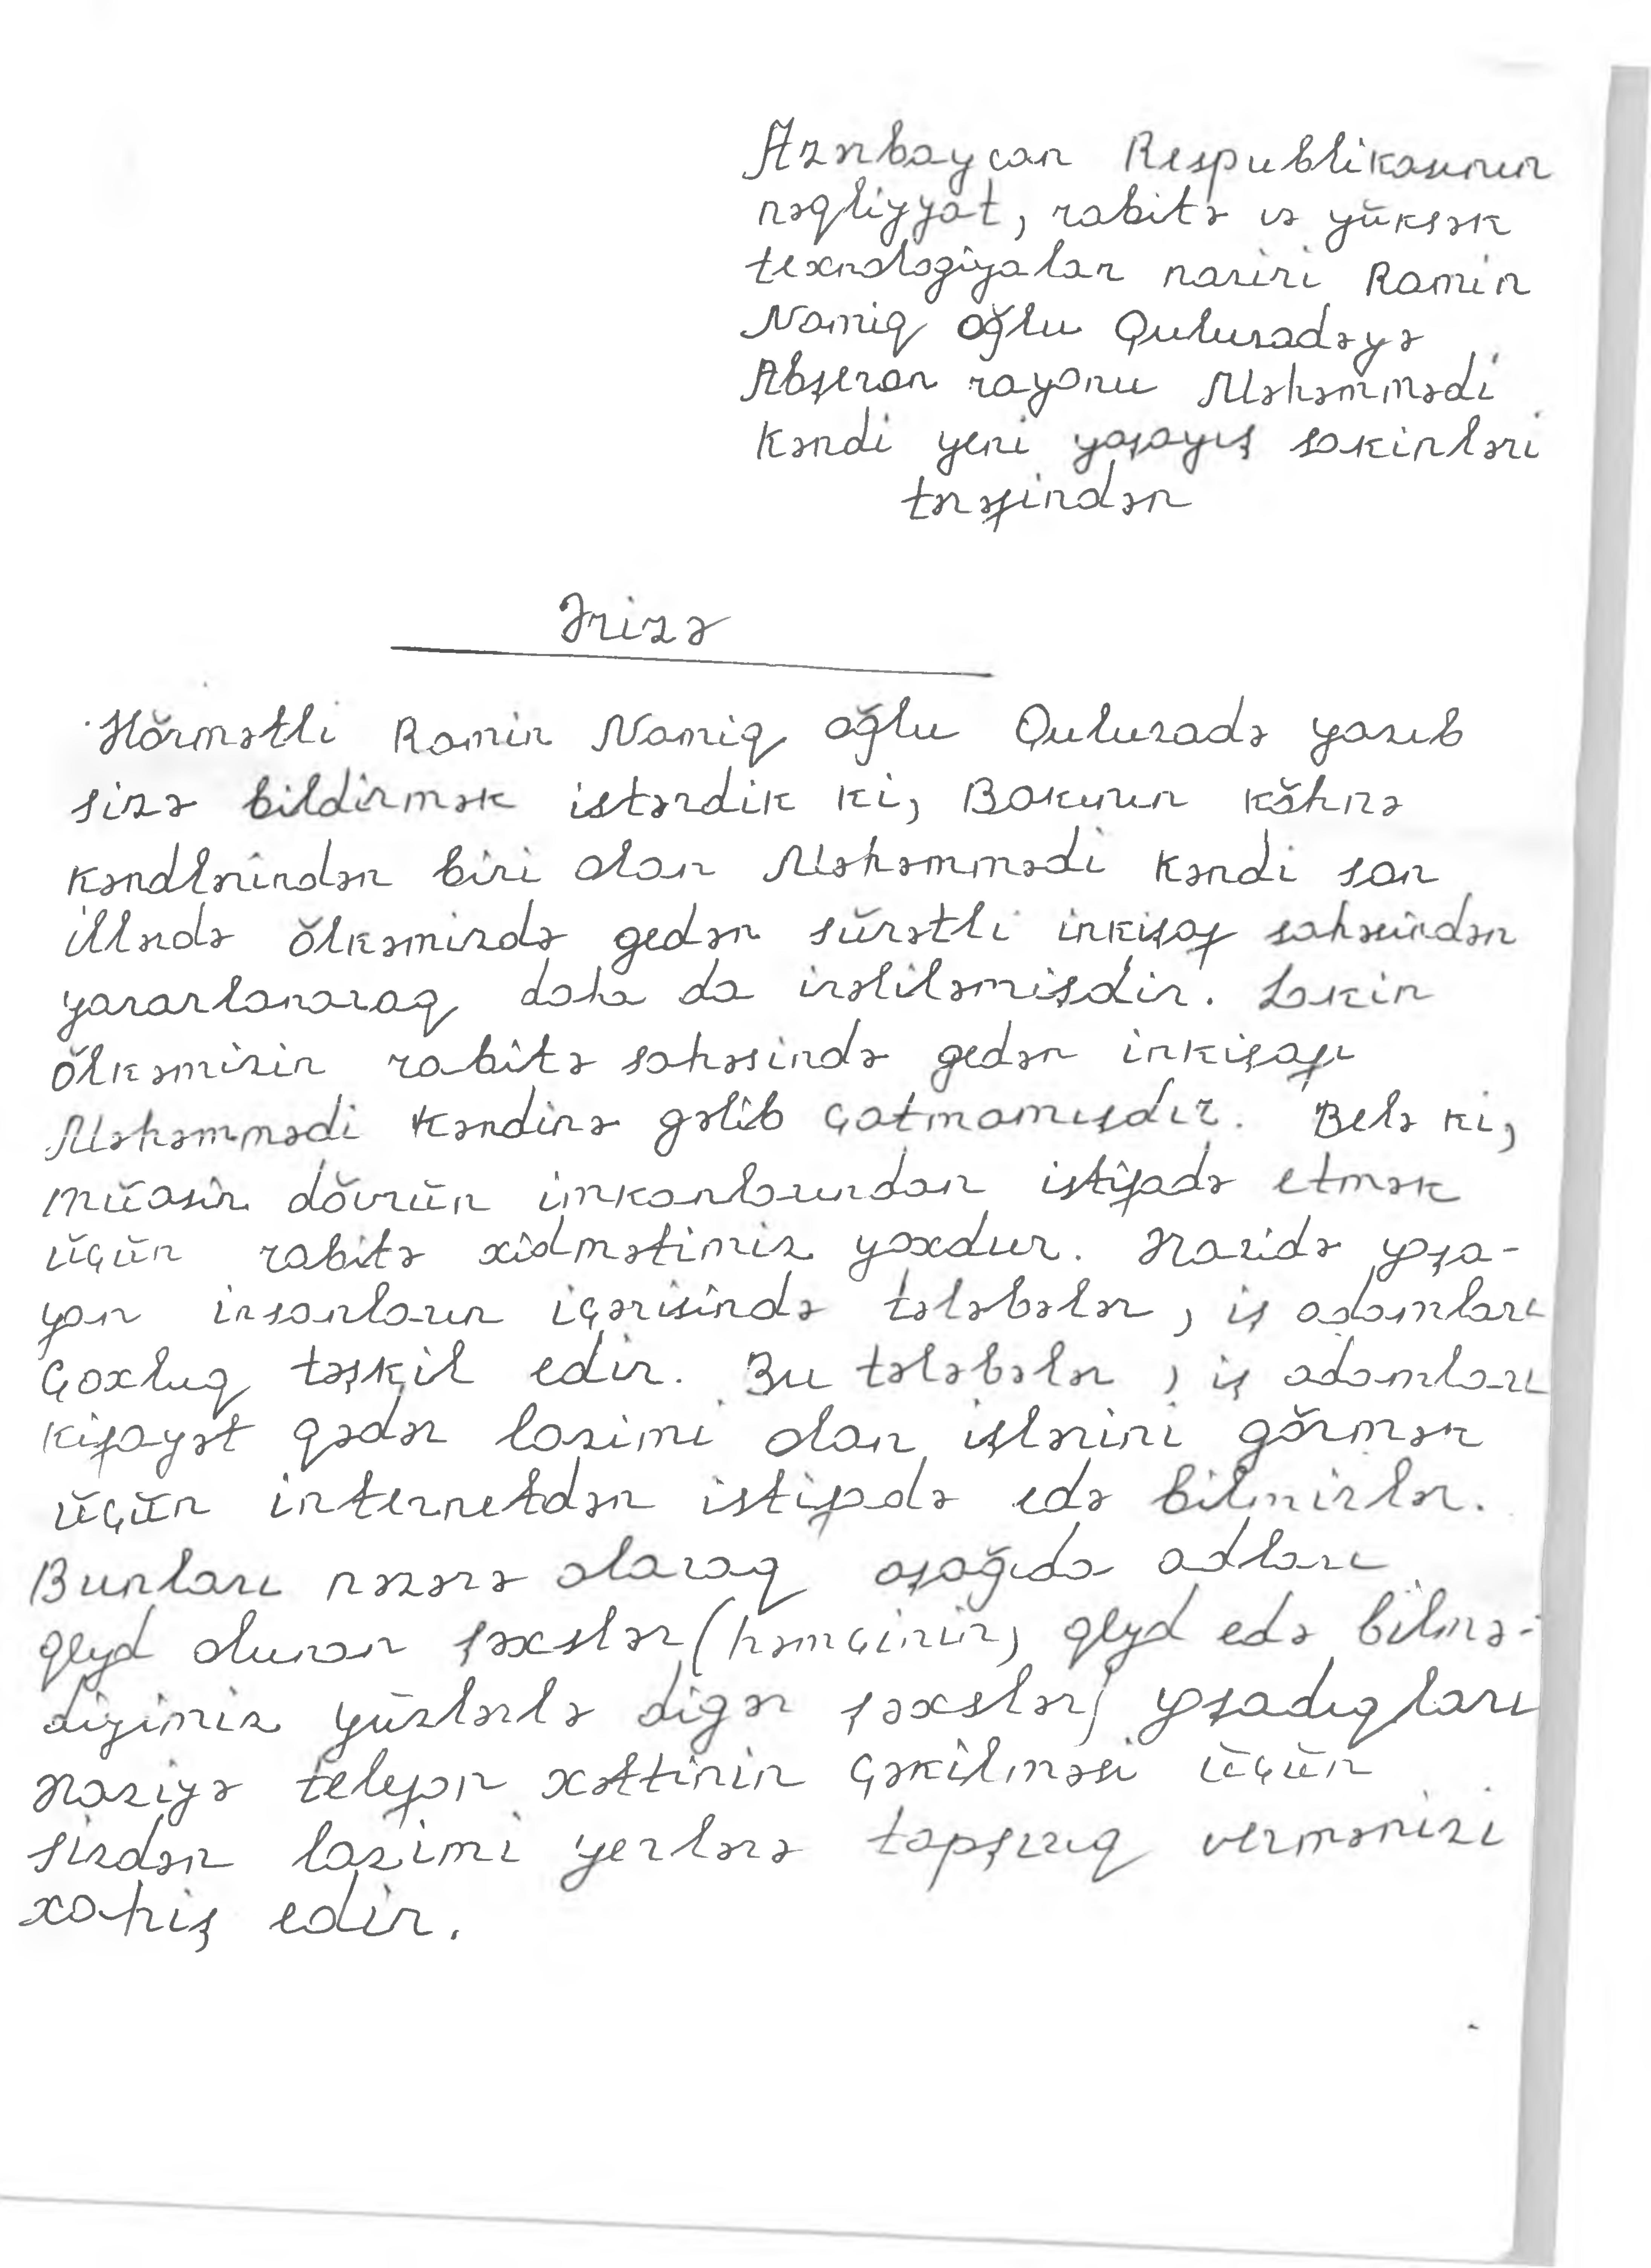 Azərbaycan Respublikasının
nəqliyyat, rabitə və yüksək
texnologiyalar naziri Ramin
Namiq oğlu Quluzadəyə
Abşeron rayonu Məhəmmədi
kəndi yeni yaşayış sakinləri
tərəfindən
Ərizə
Hörmətli Ramin Namiq oğlu Quluzadə yazıb
sizə bildirmək istərdik ki, Bakının köhnə
kəndlərindən biri olan Məhəmmədi kəndi son
illərdə ölkəmizdə gedən sürətli inkişaf sahəsindən
yararlanaraq daha da irəliləmişdir. Lakin
ölkəmizin rabitə sahəsində gedən inkişafı
Məhəmmədi kəndinə gəlib çatmamışdır. Belə ki,
müasir dövrün imkanlarından istifadə etmək
üçün rabitə xidmətimiz yoxdur. Ərazidə yaşa-
yan insanların içərisində tələbələr, iş adamları
çoxluq təşkil edir. Bu tələbələr, iş adamları
kifayət qədər lazimi olan işlərini görmək
üçün internetdən istifadə edə bilmirlər.
Bunları nəzərə alaraq aşağıda adları
qeyd olunan şəxslər (həmçinin, qeyd edə bilmə-
diyimiz yüzlərlə digər şəxslər) yaşadıqları
əraziyə telefon xəttinin çəkilməsi üçün
sizdən lazimi yerlərə tapşırıq vermənizi
xahiş edir.